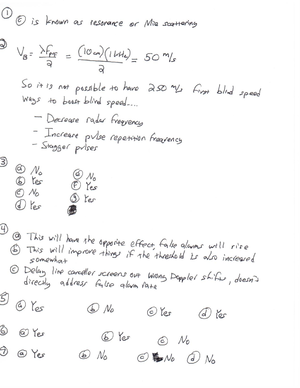 ① Ⓔ is known as resonance or Mie scattering
② V_B = λF_PR/2 = (10cm)(1kHz)/2 = 50 m/s
So it is not possible to have 250 m/s first blind speed
Ways to boost blind speed.....
— Decrease radar frequency
— Increase pulse repetition frequency
— Stagger pulses
③ ⓐ No ⓔ No
ⓑ Yes ⓕ Yes
ⓒ No ⓖ Yes
ⓓ Yes
④ ⓐ This will have the opposite effect, false alarms will rise
ⓑ This will improve things if the threshold is also increased
somewhat
ⓒ Delay line canceller screens out wrong Doppler shifts, doesn't
directly address false alarm rate
⑤ ⓐ Yes ⓑ No ⓒ Yes ⓓ Yes
⑥ ⓐ Yes ⓑ Yes ⓒ No
⑦ ⓐ Yes ⓑ No ⓒ No ⓓ No